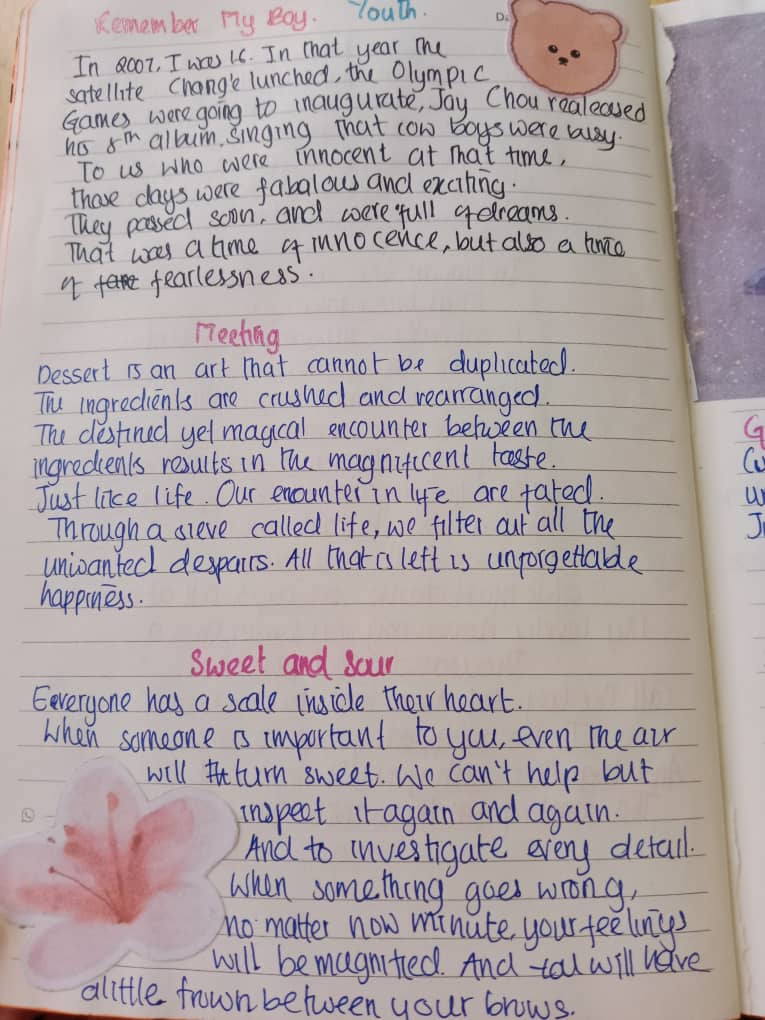 Remember My Boy. Youth.
In 2007, I was 16. In that year the
satellite Chang'e lunched, the Olympic
Games were going to inaugurate, Jay Chou realeased
his 8th album, singing that cow boys were busy.
To us who were innocent at that time,
those days were fabalous and exciting.
They passed soon, and were full of dreams.
That was a time of innocence, but also a time
of fearlessness.
Meeting
Dessert is an art that cannot be duplicated.
The ingredients are crushed and rearranged.
The destined yet magical encounter between the
ingredients results in the magnificent taste.
Just like life. Our enounter in life are fated.
Through a sieve called life, we filter out all the
uniwanted despairs. All that is left is unforgettable
happiness.
Sweet and Sour
Eeveryone has a scale inside their heart.
When someone is important to you, even the air
will turn sweet. We can't help but
inspect it again and again.
And to investigate every detail.
When something goes wrong,
no matter how minute, your feelings
will be magnified. And will have
a little frown between your brows.